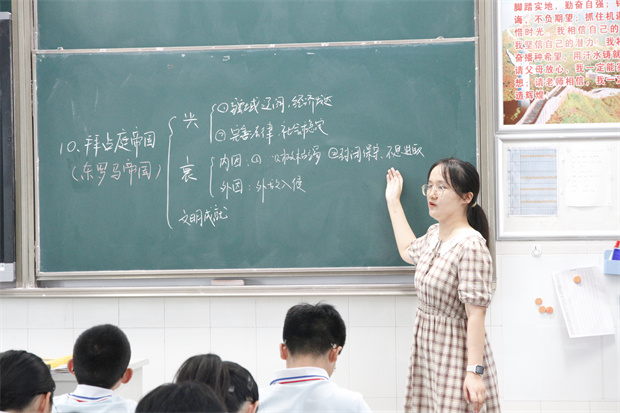 10. 拜占庭帝国
(东罗马帝国)
兴
①疆域辽阔,经济
②完善法律 社会稳定
衰
内因:① ②封闭保守,不思进取
外因:外敌入侵
文明成就
脚踏实地,勤奋自强;
诲,不负期望;抓住机
惜时光。我相信自己的
我坚信自己的潜力,我
奋播种希望,用汗水铸
请父母放心,我一定能
想;请老师相信,我一定
造辉煌